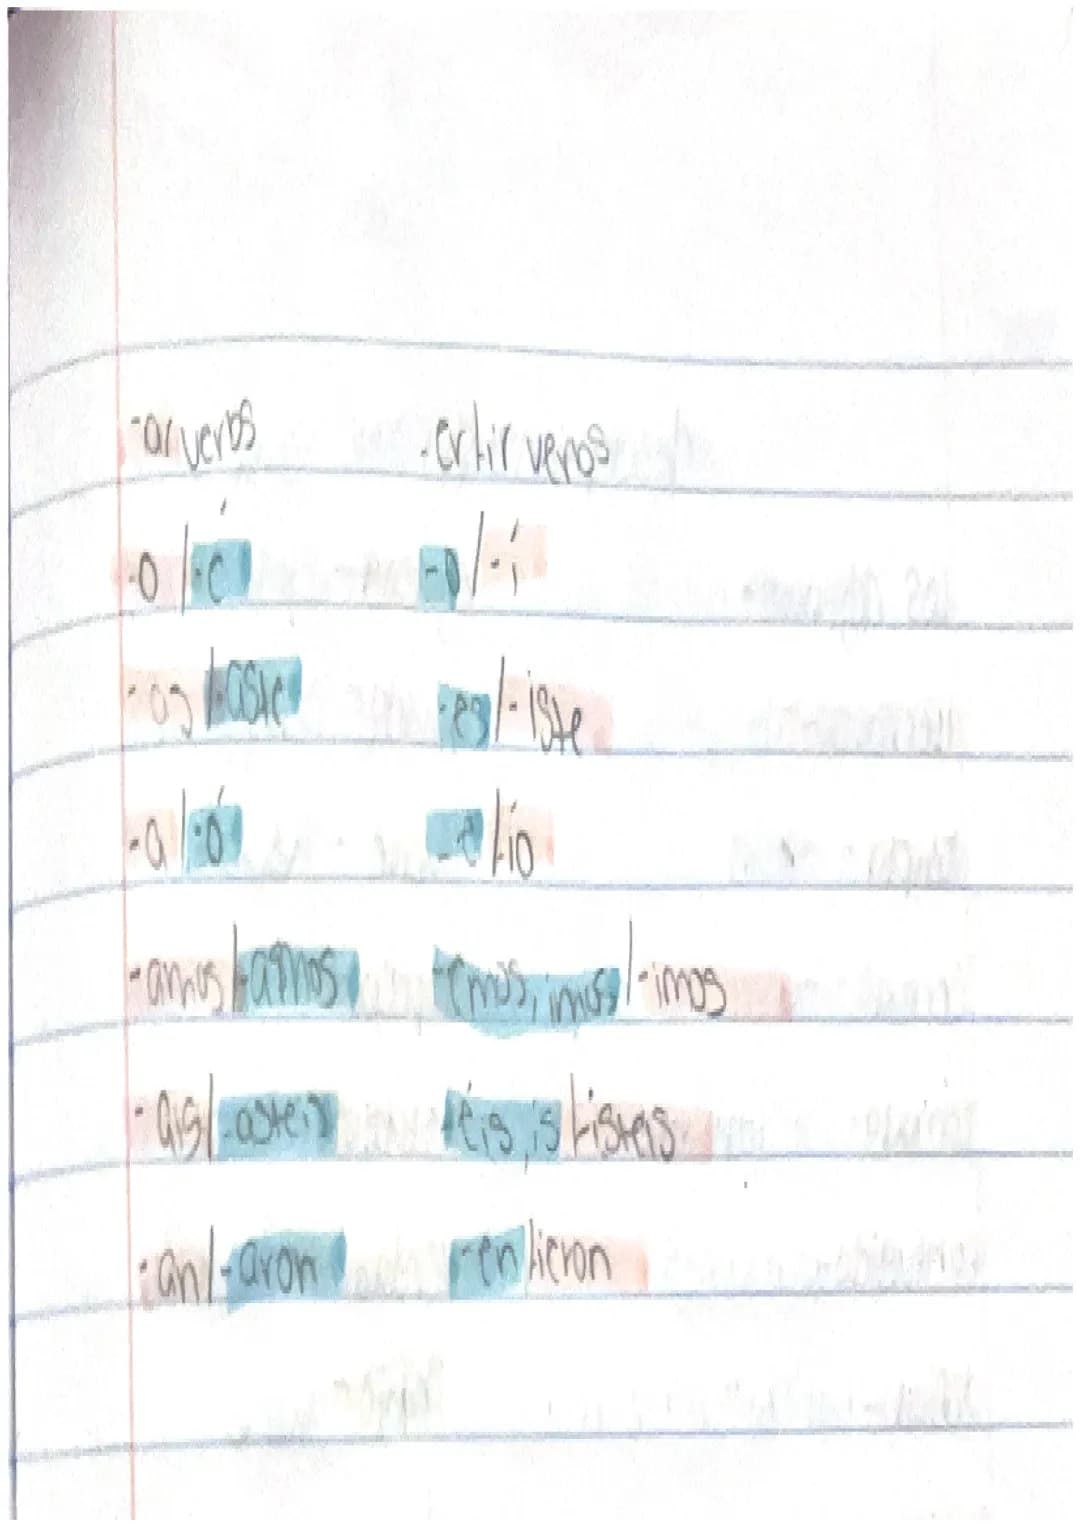 -ar verbs -er/-ir verbs
-o/-é -o/-í
-as/-aste -es/-iste
-a/-ó -e/-ío
-amos/-amos -emos, imos/-imos
-ais/-asteis -éis, ís/-isteis
-an/-aron -en/-ieron